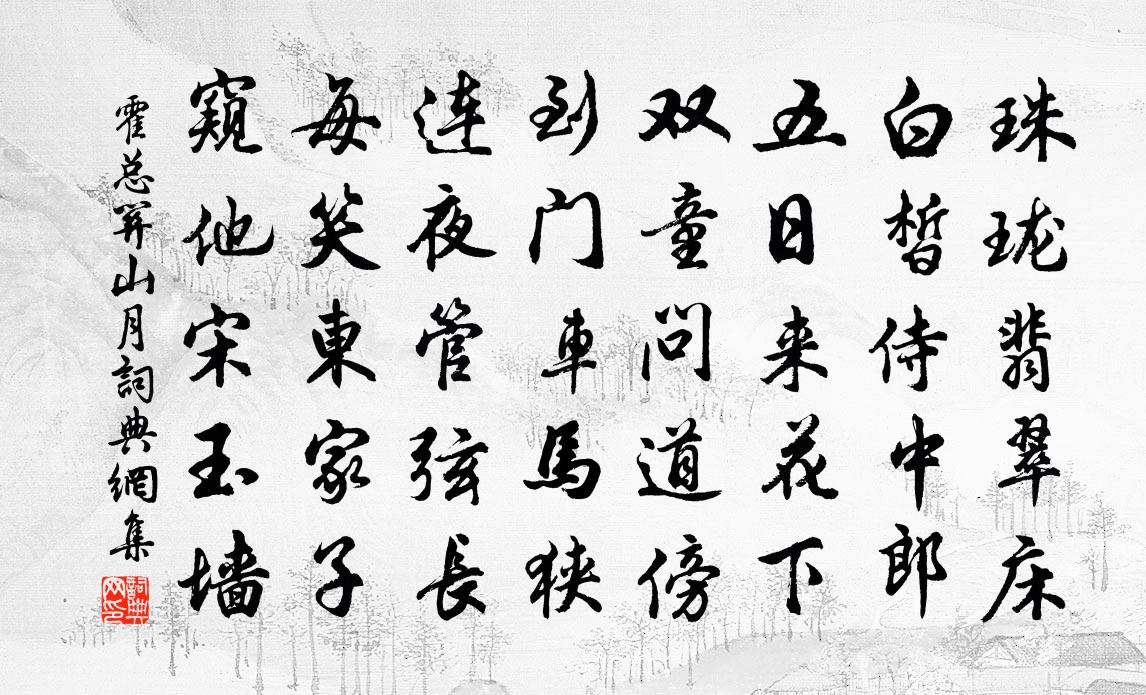 珠珑翡翠床
白皙侍中郎
五日来花下
双童问道傍
到门車馬狹
连夜管弦長
每笑東家子
窺他宋玉墙
霍总关山月詞典網集
詞典网印